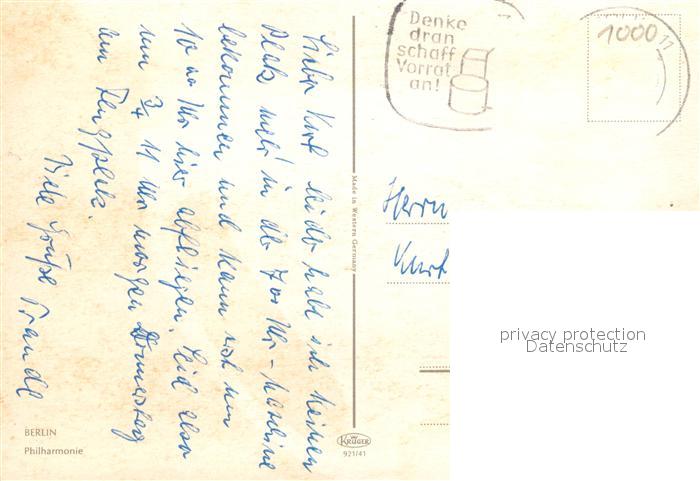 Liebe Kurt leider habe ich keinen
Platz mehr in der 7 00 Uhr-Maschine
bekommen und kann erst um
10 00 Uhr hier abfliegen. Seid also
um 3/4 11 Uhr morgen Donnerstag
am Flugplatz.
Viele Grüße Traudl
BERLIN
Philharmonie
Made in Western Germany
KRÜGER
921/41
Denke
dran
schaff
Vorrat
an!
1000
11
Herrn
Kurt
privacy protection
Datenschutz